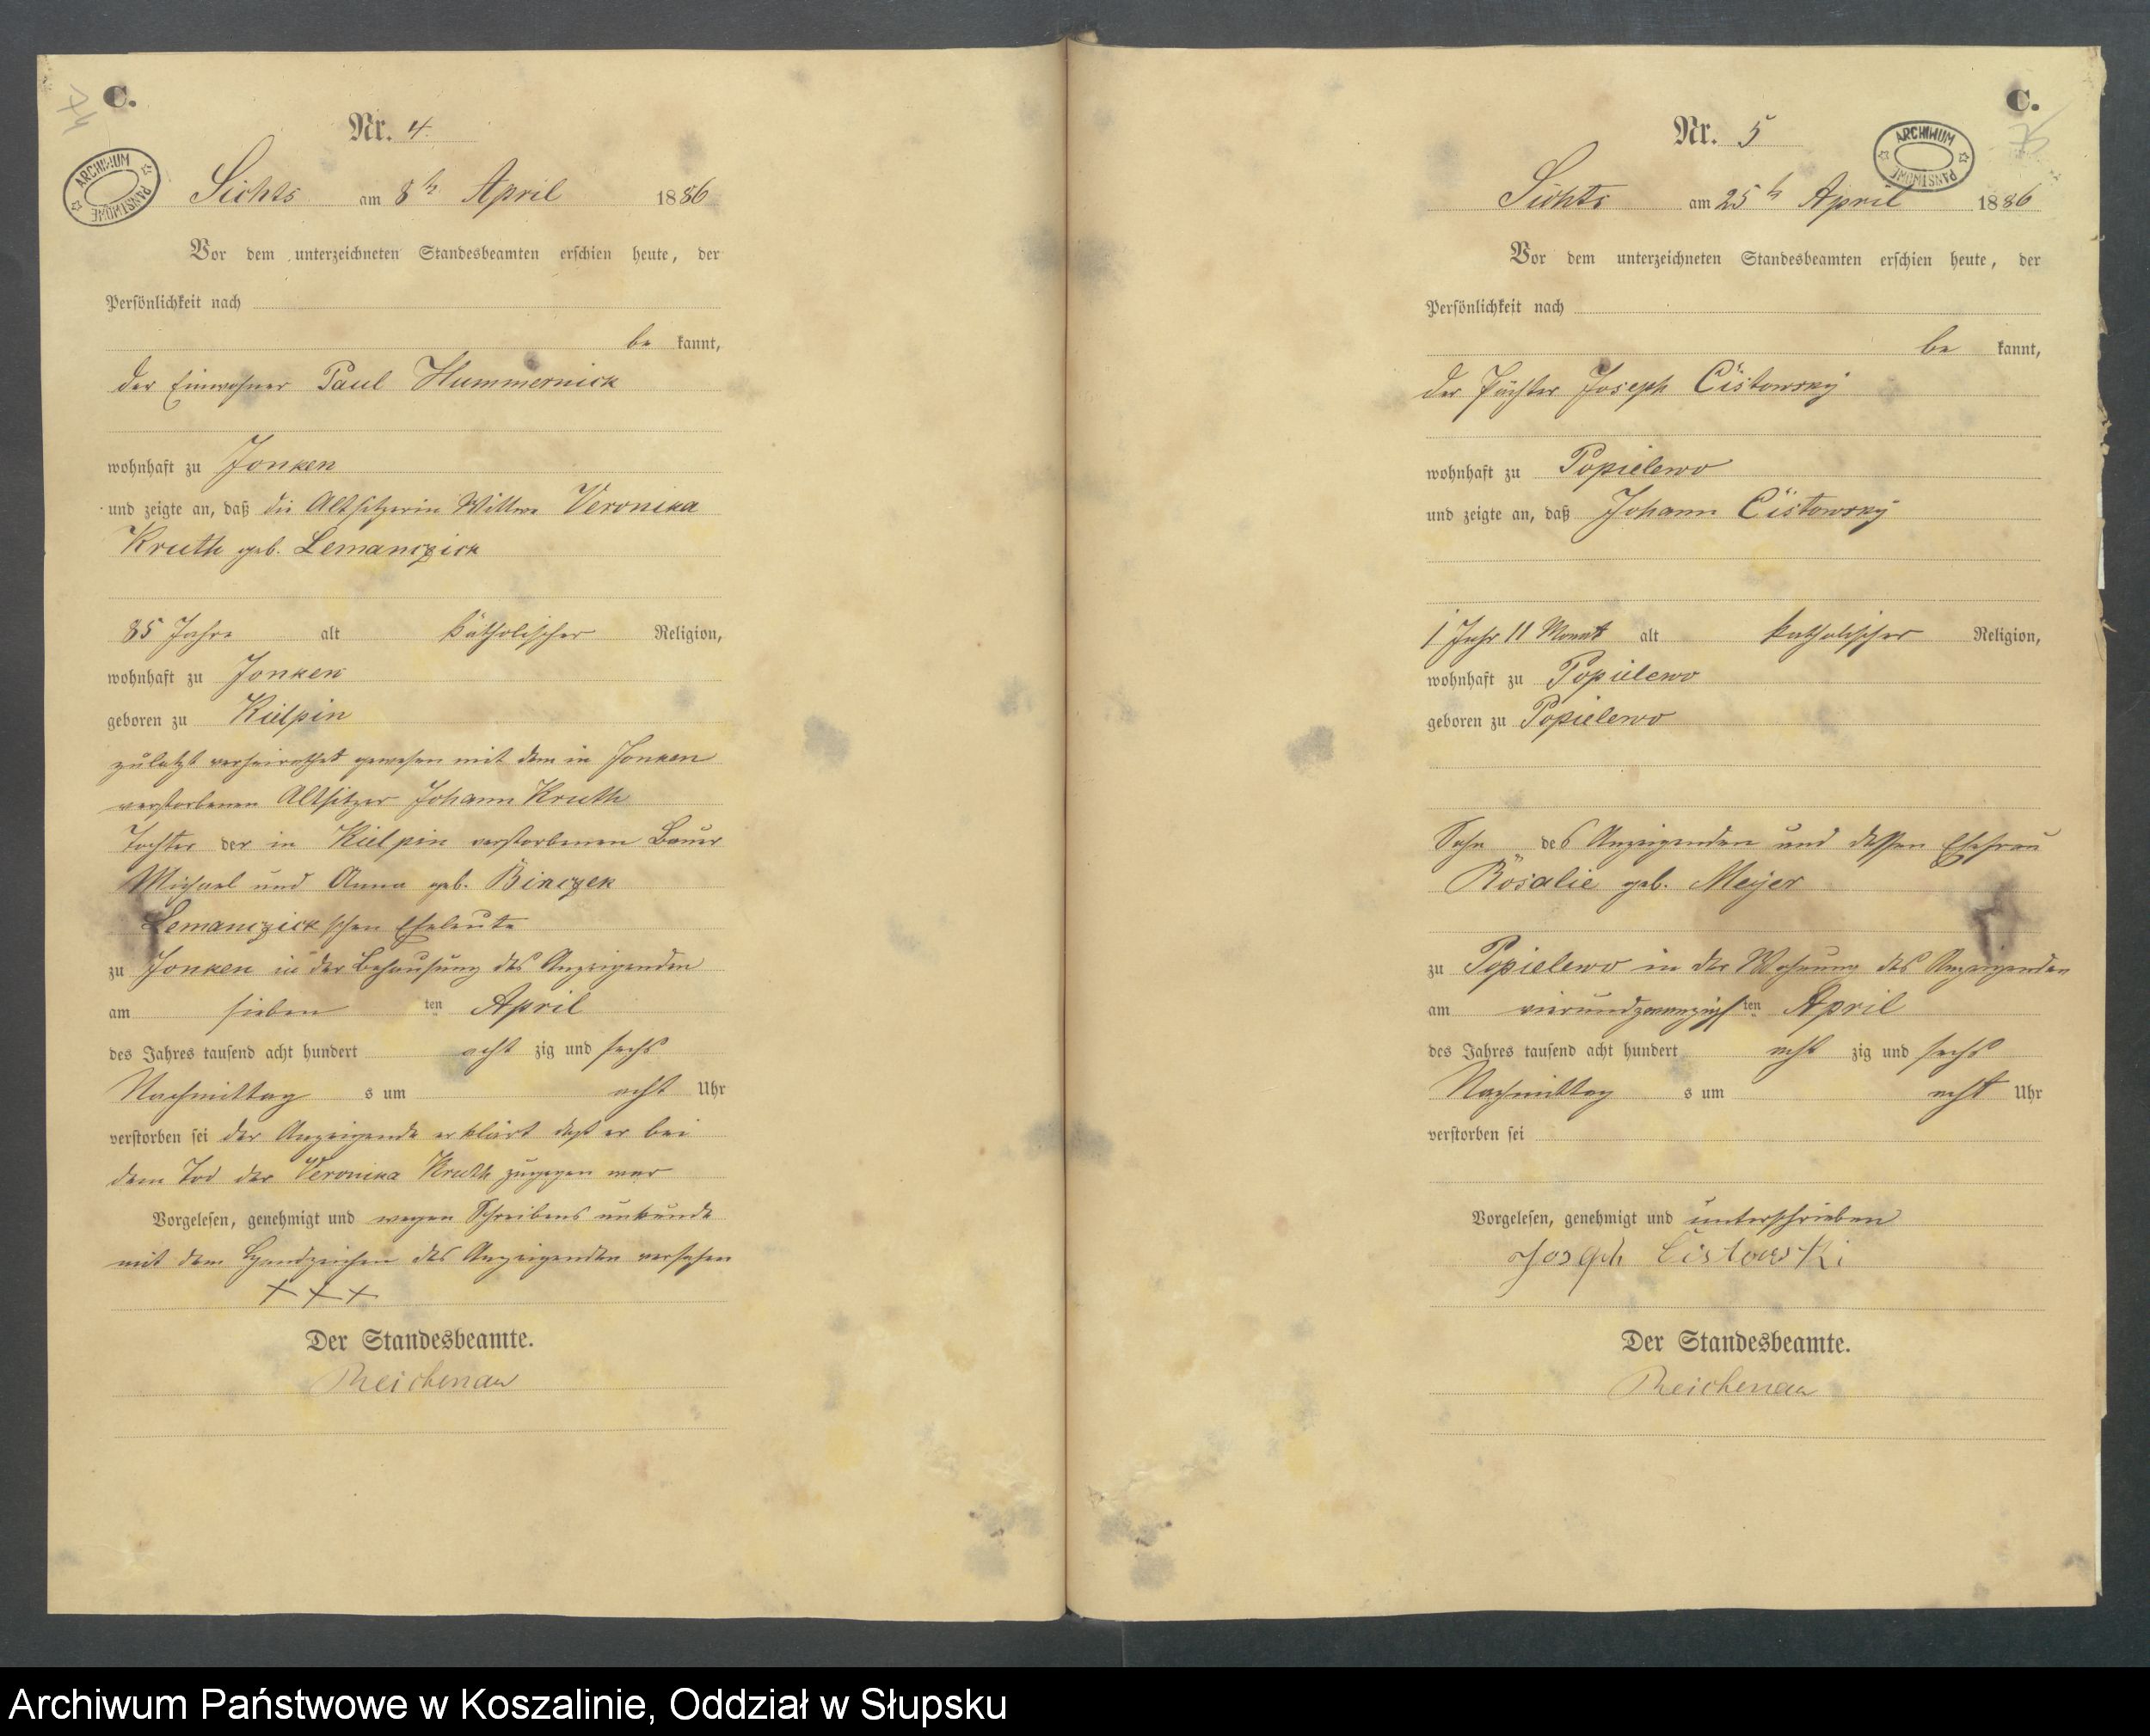 C.
Nr. 4.
ARCHIWUM PAŃSTWOWE
Sichts am 8t April 1886
Vor dem unterzeichneten Standesbeamten erschien heute, der
Persönlichkeit nach
be kannt,
der Einwohner Paul Hummernick
wohnhaft zu Jonken
und zeigte an, daß die Altsitzerin Wittwe Veronika
Kruth geb. Lemanczick
85 Jahre alt katholischer Religion,
wohnhaft zu Jonken
geboren zu Kielpin
zuletzt verheirathet gewesen mit dem in Jonken
verstorbenen Altsitzer Johann Kruth
Tochter der in Kielpin verstorbenen Bauer
Michael und Anna geb. Binczek
Lemanczick schen Eheleute
zu Jonken in der Behausung des Anzeigenden
am sieben ten April
des Jahres tausend acht hundert acht zig und sechs
Nachmittag s um acht Uhr
verstorben sei der Anzeigende erklärt daß er bei
dem Tod der Veronika Kruth zugegen war
Vorgelesen, genehmigt und wegen Schreibens unkunde
mit dem Handzeichen des Anzeigenden versehen
+ + +
Der Standesbeamte.
Reichenau
C.
Nr. 5
ARCHIWUM PAŃSTWOWE
Sichts am 25t April 1886
Vor dem unterzeichneten Standesbeamten erschien heute, der
Persönlichkeit nach
be kannt,
der Pächter Joseph Cistowsky
wohnhaft zu Popielewo
und zeigte an, daß Johann Cistowsky
1 Jahr 11 Monat alt katholischer Religion,
wohnhaft zu Popielewo
geboren zu Popielewo
Sohn des Anzeigenden und dessen Ehefrau
Rosalie geb. Meyer
zu Popielewo in der Wohnung des Anzeigenden
am vierundzwanzigs ten April
des Jahres tausend acht hundert acht zig und sechs
Nachmittag s um acht Uhr
verstorben sei
Vorgelesen, genehmigt und unterschrieben
Joseph Cistowski
Der Standesbeamte.
Reichenau
Archiwum Państwowe w Koszalinie, Oddział w Słupsku